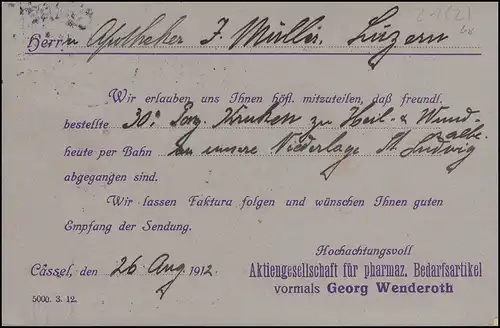 Herrn Apotheker J. Müller. Luzern
Wir erlauben uns Ihnen höfl. mitzuteilen, daß freundl.
bestellte 30. Porz. Kruken zu Heil- & Wund-
salbe
heute per Bahn an unsere Niederlage St. Ludwig
abgegangen sind.
Wir lassen Faktura folgen und wünschen Ihnen guten
Empfang der Sendung.
Hochachtungsvoll
Cassel, den 26 Aug 1912. Aktiengesellschaft für pharmaz. Bedarfsartikel
vormals Georg Wenderoth
5000. 3. 12.